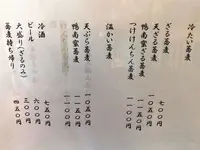 冷たい蕎麦
ざる蕎麦 七〇〇
天ざる蕎麦 一五〇〇
鴨南蛮ざる蕎麦 一一五〇
つけけんちん蕎麦 一一〇〇
温かい蕎麦
天ぷら蕎麦 一〇五〇
鴨南蛮蕎麦 一〇五〇
冷酒 七五〇
ビール 六〇〇
大盛り(ざるのみ) 三五〇
蕎麦持ち帰り 四五〇